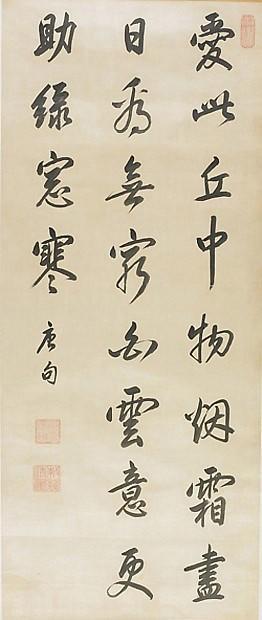 愛此丘中物烟霜盡
日看無窮白雲意更
助綠窗寒
唐句